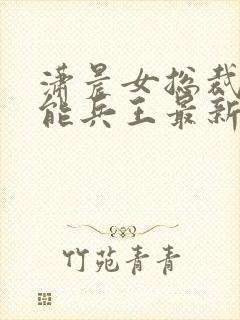 潇晨女总裁
能兵王最新
竹苑青青